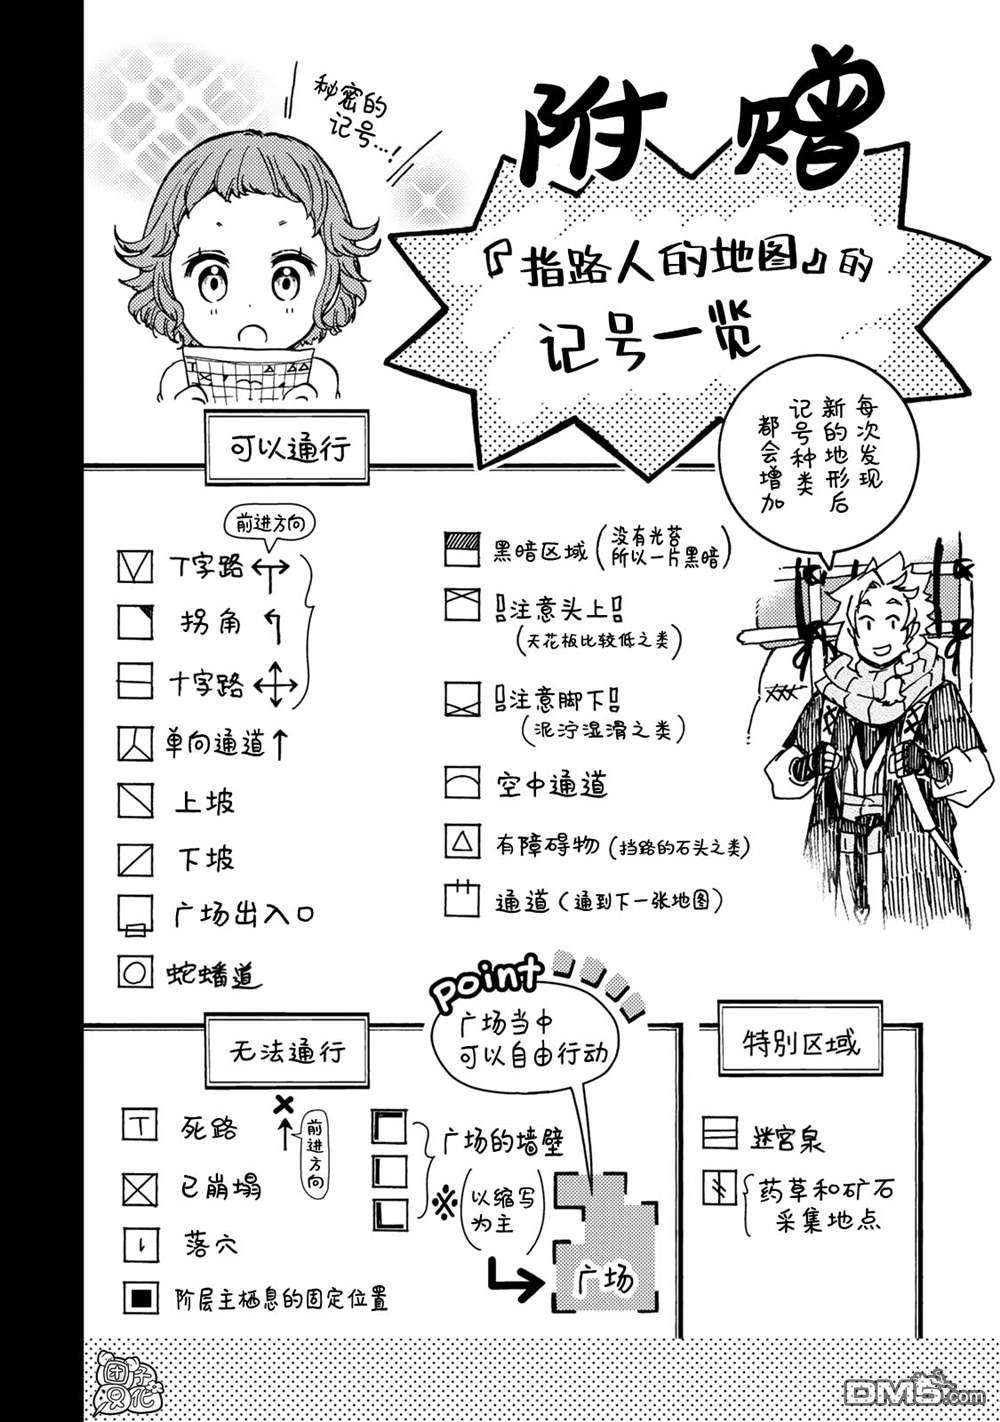 附赠
秘密的
记号…!
『指路人的地图』的
记号一览
每次发现
新的地形后
记号种类
都会增加
可以通行
前进方向
T字路
拐角
十字路
单向通道
上坡
下坡
广场出入口
蛇蟠道
黑暗区域(没有光苔
所以一片黑暗)
!!注意头上!!
(天花板比较低之类)
!!注意脚下!!
(泥泞湿滑之类)
空中通道
有障碍物(挡路的石头之类)
通道(通到下一张地图)
Point
广场当中
可以自由行动
无法通行
死路
前进方向
已崩塌
落穴
阶层主栖息的固定位置
广场的墙壁
※(以缩写
为主)
广场
特别区域
迷宫泉
药草和矿石
采集地点
团子
只化
DM5.com